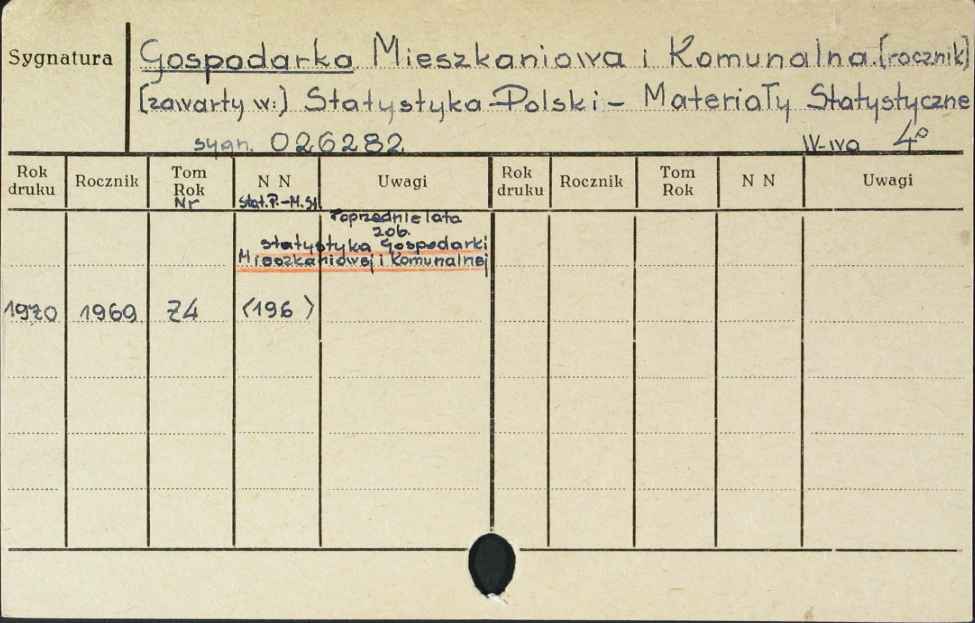 Sygnatura
Gospodarka Mieszkaniowa i Komunalna.[rocznik]
[zawarty w:] Statystyka Polski – Materiały Statystyczne
sygn. 026282 W-wa 4°
Rok druku Rocznik Tom Rok Nr N N Stat.P.-M.St Uwagi Rok druku Rocznik Tom Rok N N Uwagi
Poprzednie lata
zob.
Statystyka Gospodarki
Mieszkaniowej i Komunalnej
1970 1969 Z4 (196 )